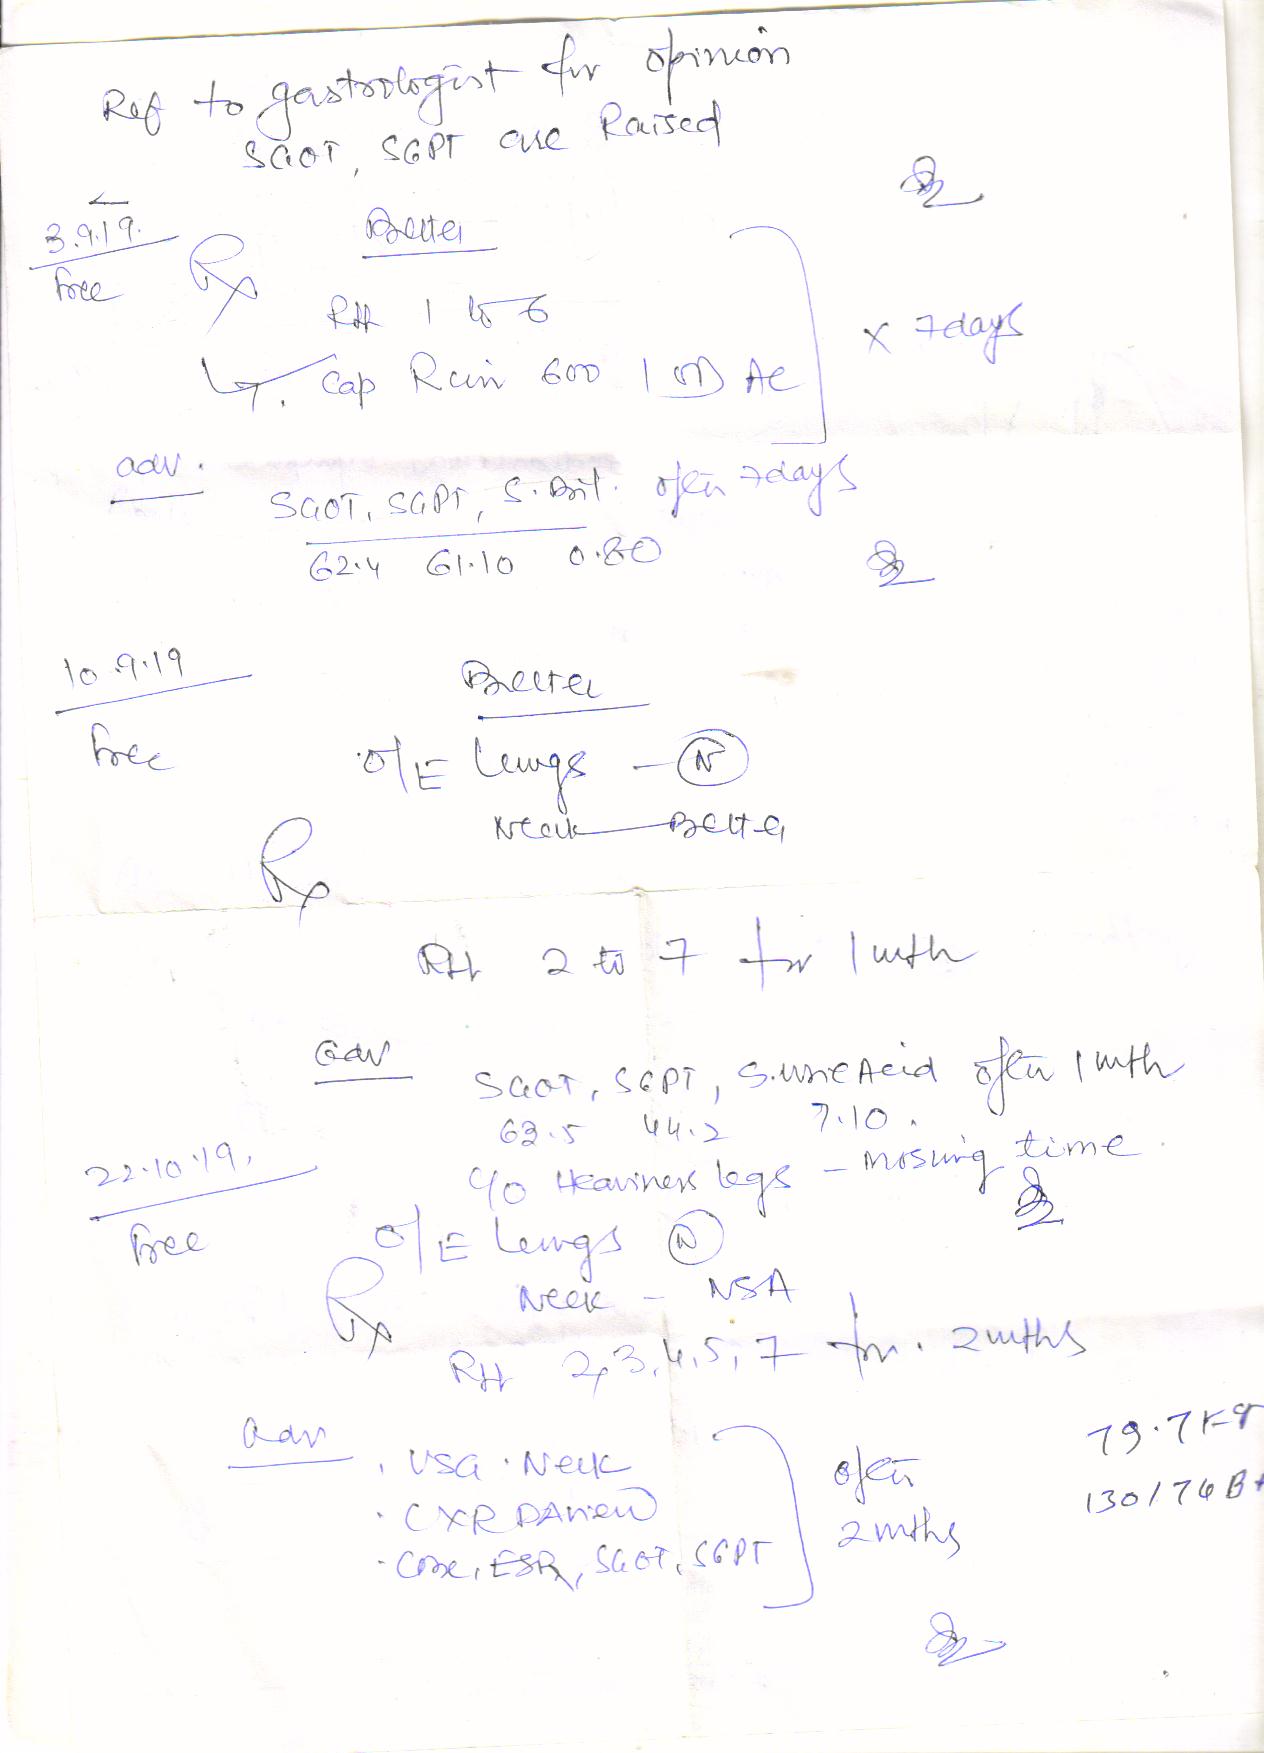 Ref to gastrologist for opinion
SGOT, SGPT are Raised
3.9.19.
free
Rx
Better
RH 1 to 6
Cap Rcin 600 1 OD AC
x 7days
adv.
SGOT, SGPT, S.Bil. after 7days
62.4 61.10 0.80
10.9.19
free
Better
O/E Lungs - N
Neck - Better
Rx
RH 2 to 7 for 1 mth
adv
SGOT, SGPT, S.Uric Acid after 1 mth
63.5 44.2 7.10.
22.10.19.
free
C/o Heaviness legs - morning time
O/E Lungs N
Neck - NSA
Rx
RH 2,3,4,5,7 for 2 mths
adv
. USG Neck
. CXR PA view
. CBC, ESR, SGOT, SGPT
after
2 mths
79.7 Kg
130/76 B